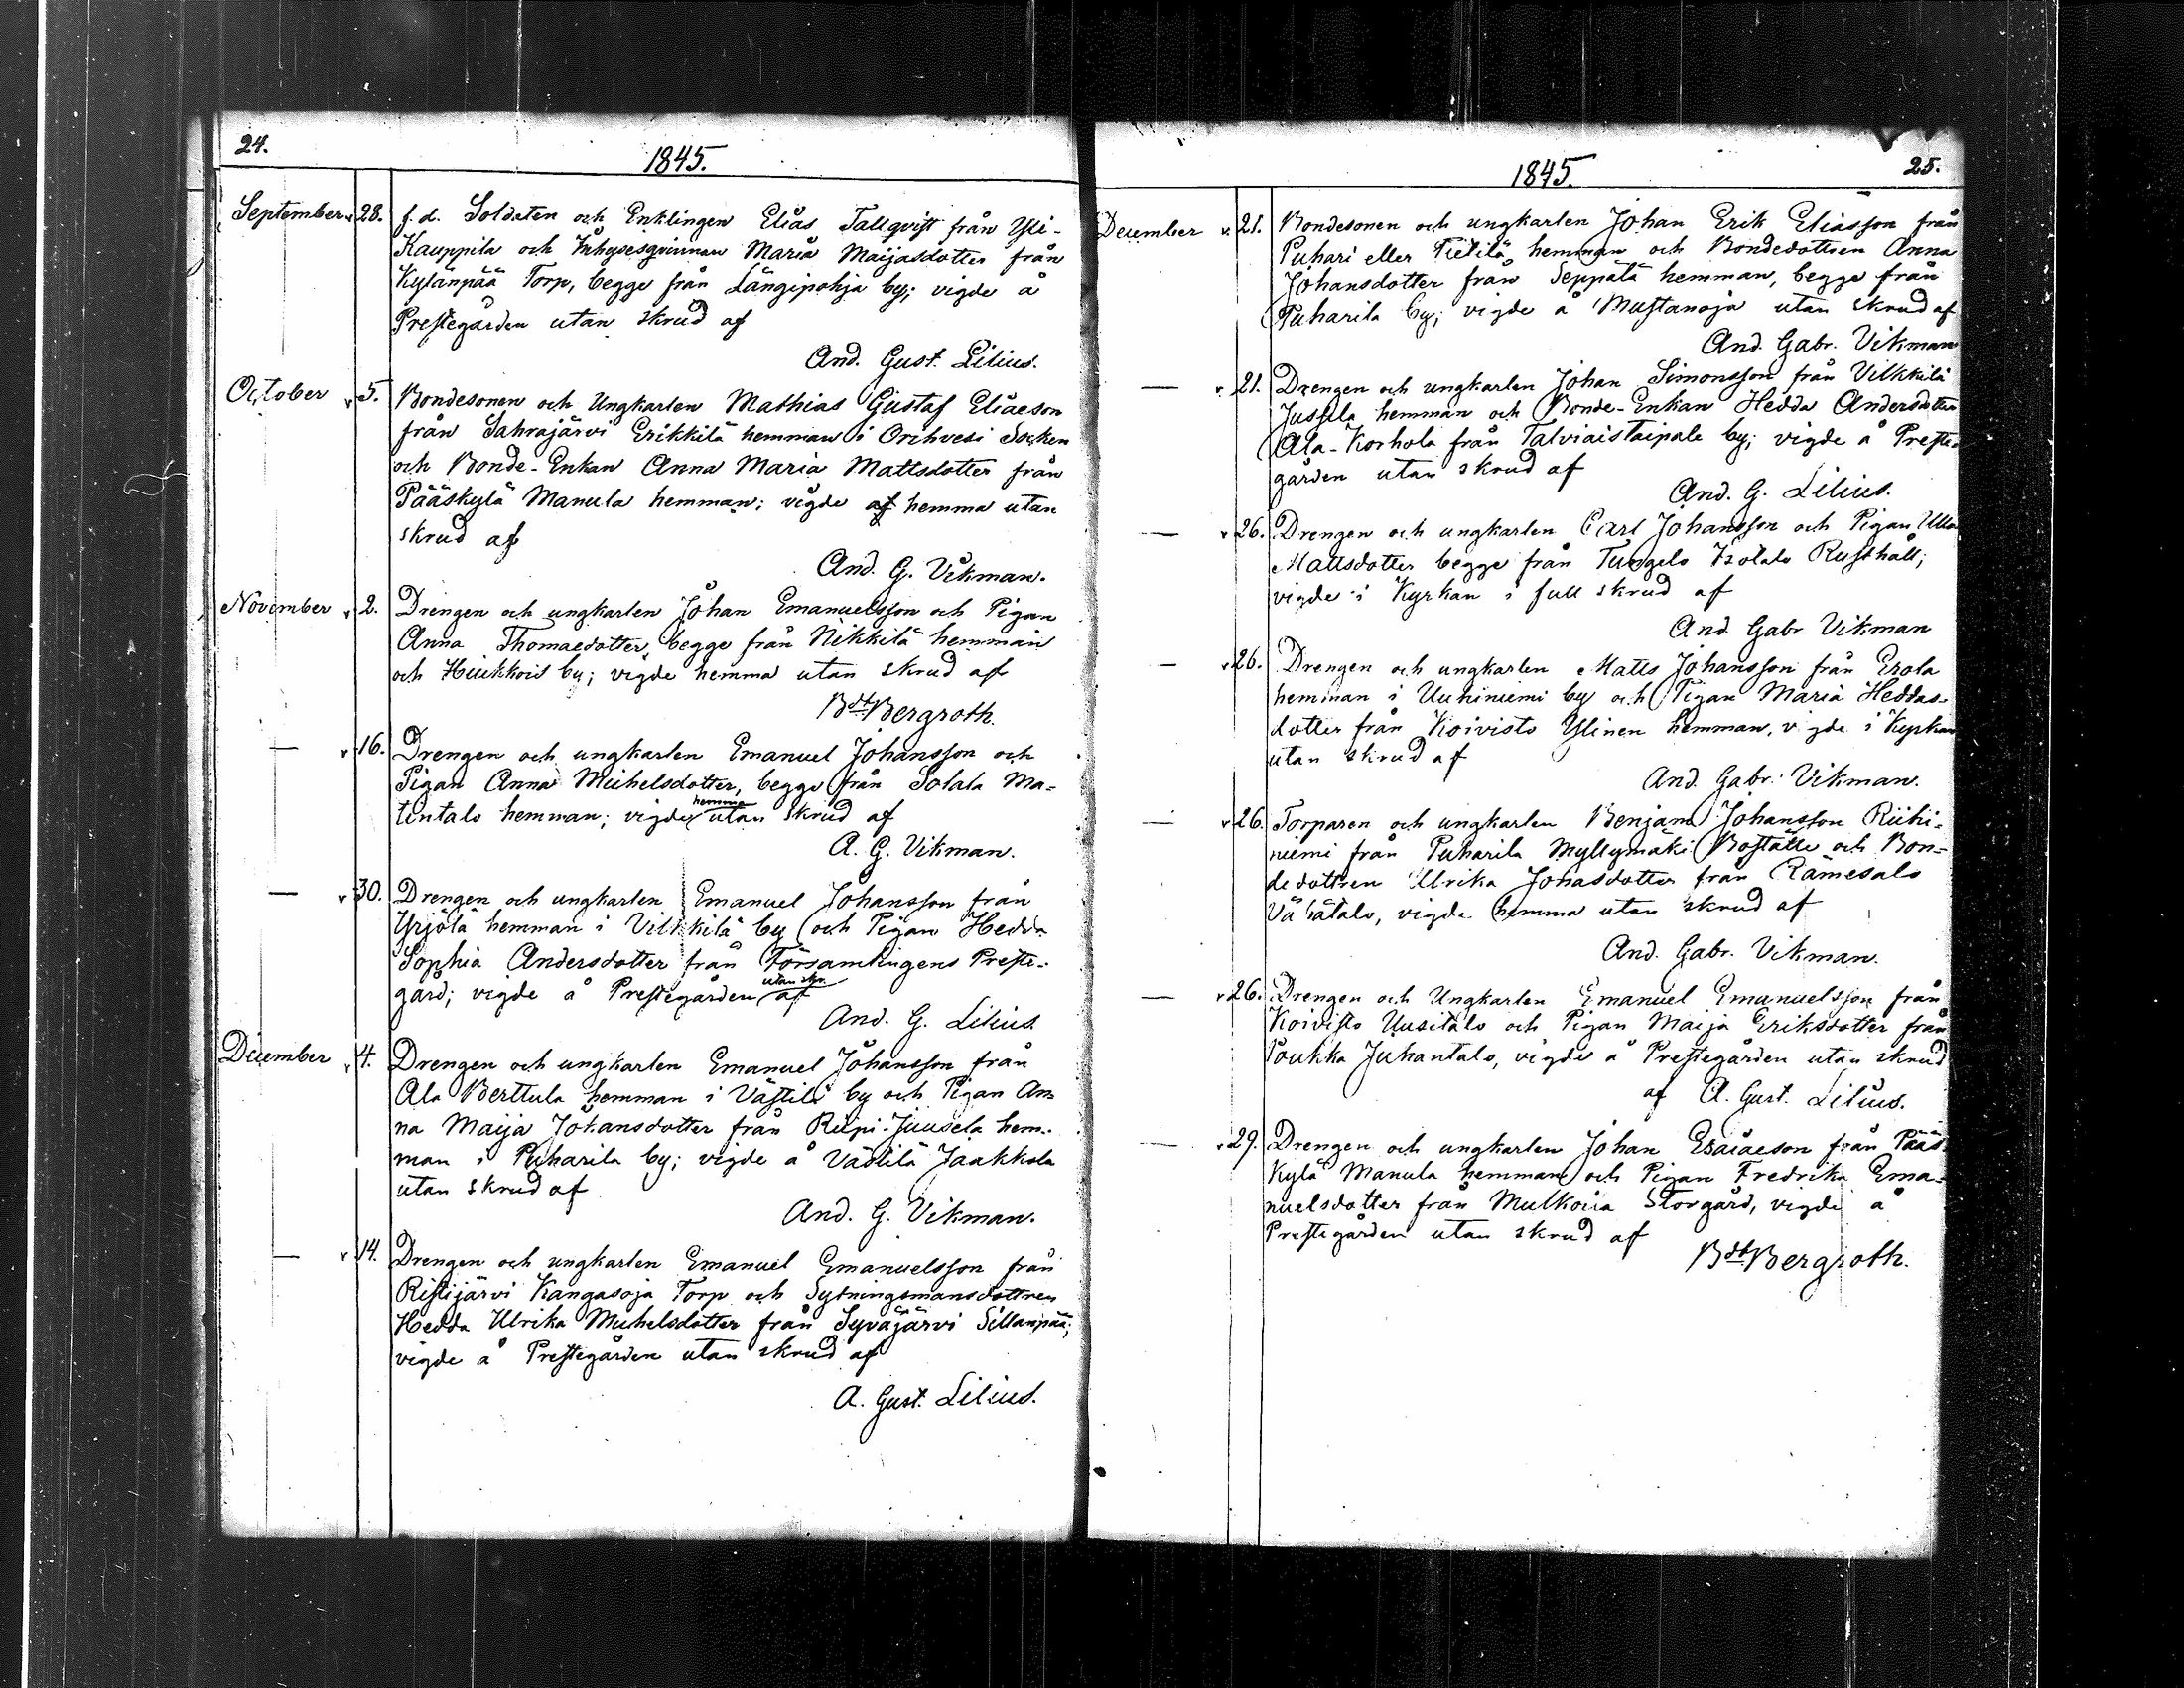 24.
1845.
September v 28. f. d. Soldaten och Enklingen Elias Tallqvist från Yli-
Kauppila och Inhysesqvinnan Maria Maijasdotter från
Kylänpää Torp, begge från Längipohja by; vigde å
Prestegården utan skrud af
And. Gust. Lilius.
October v 5. Bondesonen och Ungkarlen Mathias Gustaf Eliaeson
från Sahrajärvi Erikkilä hemman i Orihvesi Socken
och Bonde-Enkan Anna Maria Mattsdotter från
Pääskylä Manula hemman; vigde af hemma utan
skrud af
And. G. Vikman.
November v 2. Drengen och ungkarlen Johan Emanuelsson och Pigan
Anna Thomaedotter, begge från Nikkilä hemman
och Hiukkois by; vigde hemma utan skrud af
Bdt Bergroth.
— v 16. Drengen och ungkarlen Emanuel Johansson och
Pigan Anna Michelsdotter, begge från Solala Ma-
tintalo hemman; vigde hemma utan skrud af
A. G. Vikman.
— v 30. Drengen och ungkarlen Emanuel Johansson från
Yrjölä hemman i Vilkkilä by och Pigan Hedda
Sophia Andersdotter från Församlingens Preste-
gård; vigde å Prestegården utan skr. af
And. G. Lilius.
December v 4. Drengen och ungkarlen Emanuel Johansson från
Ala Berttula hemman i Västilä by och Pigan An-
na Maija Johansdotter från Riipi-Juusela hem-
man i Puharila by; vigde å Västilä Jaakkola
utan skrud af
And. G. Vikman.
— v 14. Drengen och ungkarlen Emanuel Emanuelsson från
Ristijärvi Kangasoja Torp och Sytningsmansdottren
Hedda Ulrika Michelsdotter från Syväjärvi Sillanpää;
vigde å Prestegården utan skrud af
A. Gust. Lilius.
1845.
25.
December v. 21. Bondesonen och ungkarlen Johan Erik Eliasson från
Puhari eller Tietilä hemman och Bondedottren Anna
Johansdotter från Seppälä hemman, begge från
Puharila by; vigde å Mustanoja utan skrud af
And. Gabr. Vikman
— v 21. Drengen och ungkarlen Johan Simonsson från Vilkkilä
Jussila hemman och Bonde-Enkan Hedda Andersdotter
Ala-Korhola från Talviaistaipale by; vigde å Preste-
gården utan skrud af
And. G. Lilius.
— v 26. Drengen och ungkarlen Carl Johansson och Pigan Ulla
Mattsdotter begge från Isotalo Rusthåll;
vigde i Kyrkan i full skrud af
And. Gabr. Vikman
— v 26. Drengen och ungkarlen Matts Johansson från Erola
hemman i Uuhiniemi by och Pigan Maria Heddas-
dotter från Koivisto Ylinen hemman, vigde i Kyrkan
utan skrud af
And. Gabr. Vikman.
— v 26. Torparen och ungkarlen Benjam Johansson Riihi-
niemi från Puharila Myllymäki Boställe och Bon-
dedottren Ulrika Johasdotter från Rämesalo
Vähätalo, vigde hemma utan skrud af
And. Gabr. Vikman.
— v 26. Drengen och Ungkarlen Emanuel Emanuelsson från
Koivisto Uusitalo och Pigan Maija Eriksdotter från
Poukka Juhantalo, vigde å Prestegården utan skrud
af A. Gust. Lilius.
— v 29. Drengen och ungkarlen Johan Esaiaeson från Pääs
kylä Manula hemman och Pigan Fredrika Ema-
nuelsdotter från Mulkoila Storgård, vigde å
Prestegården utan skrud af
Bdt Bergroth.